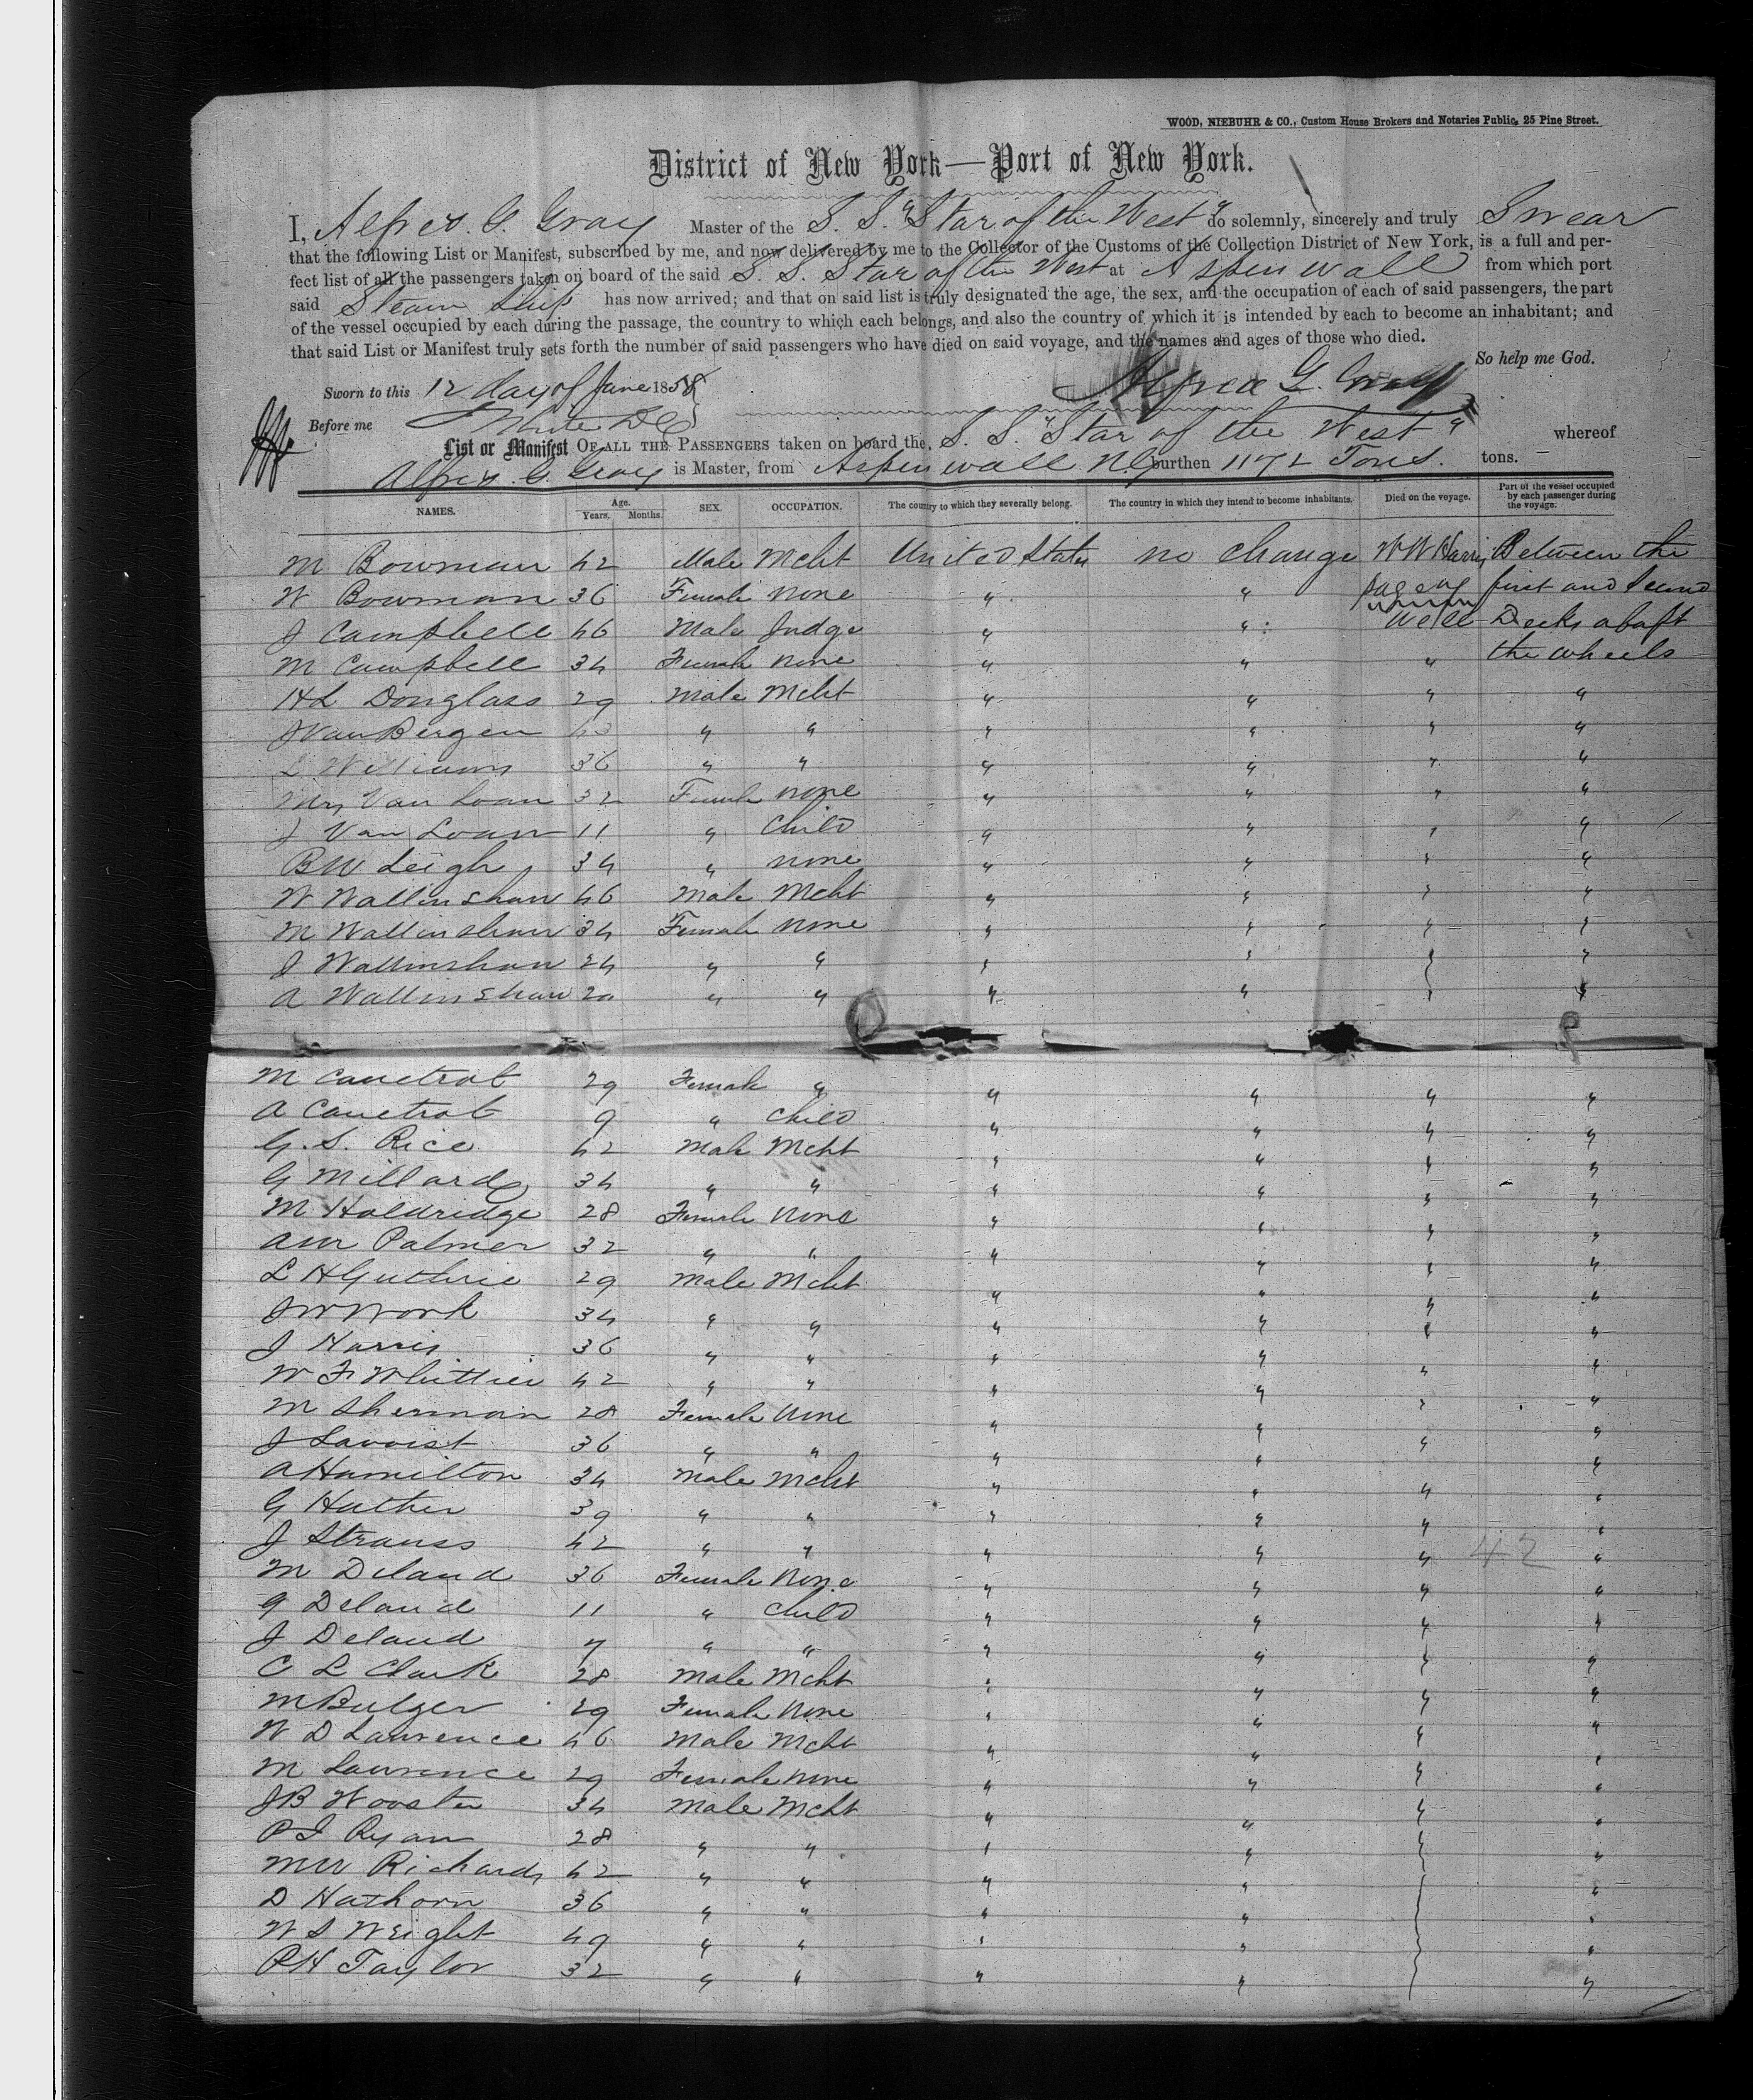 WOOD, NIEBUHR & CO., Custom House Brokers and Notaries Public, 25 Pine Street.
District of New York—Port of New York.
I, Alfred. G. Gray Master of the S. S. "Star of the West" do solemnly, sincerely and truly Swear
that the following List or Manifest, subscribed by me, and now delivered by me to the Collector of the Customs of the Collection District of New York, is a full and per-
fect list of all the passengers taken on board of the said S. S. Star of the West at Aspinwall from which port
said Steam Ship has now arrived; and that on said list is truly designated the age, the sex, and the occupation of each of said passengers, the part
of the vessel occupied by each during the passage, the country to which each belongs, and also the country of which it is intended by each to become an inhabitant; and
that said List or Manifest truly sets forth the number of said passengers who have died on said voyage, and the names and ages of those who died.
So help me God.
Sworn to this 12 day of June 1858 Alfred G. Gray
Before me White DC
List or Manifest OF ALL THE PASSENGERS taken on board the S. S. "Star of the West" whereof
Alfred. G. Gray is Master, from Aspinwall NG burthen 1172 Tons. tons.
NAMES. Age. Years. Months. SEX. OCCUPATION. The country to which they severally belong. The country in which they intend to become inhabitants. Died on the voyage. Part of the vessel occupied by each passenger during the voyage.
M Bowman 42 Male Mcht United States no change W W Harris Between the
W Bowman 36 Female none " " first and Second
J Campbell 46 Male Judge " " Well Decks abaft
M Campbell 34 Female none " " " the wheels
H L Douglass 29 Male Mcht " " " "
J Van Bergen 43 " " " " " "
L Williams 36 " " " " " "
Mrs Van Loan 32 Female none " " " "
J Van Loan 11 " Child " " " "
B W Leigh 34 " none " " " "
W Wallinshaw 46 Male Mcht " " " "
M Wallinshaw 34 Female none " " " "
J Wallinshaw 24 " " " " " "
A Wallinshaw 20 " " " " " "
M Canetrot 29 Female " " " " "
A Canetrot 9 " Child " " " "
G. S. Rice 42 Male Mcht " " " "
G Millard 34 " " " " " "
M Holdridge 28 Female None " " " "
AM Palmer 32 " " " " " "
L H Guthrie 29 Male Mcht " " " "
J W Work 34 " " " " " "
J Harris 36 " " " " " "
W F Whittier 42 " " " " " "
M Sherman 28 Female None " " " "
J 36 " " " " " "
A Hamilton 34 Male Mcht " " " "
G Huther 39 " " " " " "
J Strauss 42 " " " " " "
42
M Deland 36 Female None " " " "
G Deland 11 " Child " " " "
J Deland 7 " " " " " "
C L Clark 28 Male Mcht " " " "
M Bulger 29 Female None " " " "
W D Lawrence 46 Male Mcht " " " "
M Lawrence 29 Female None " " " "
J B Wooster 34 Male Mcht " " " "
P J Ryan 28 " " " " " "
M W Richards 42 " " " " "
D Hathorn 36 " " " " "
W S Wright 49 " " " " "
P H Taylor 32 " " " " "